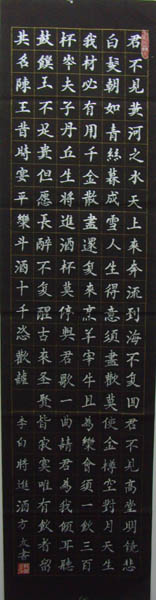 君不見黃河之水天上來奔流到海不復回君不見高堂明镜悲
白髮朝如青絲暮成雪人生得意須盡歡莫使金樽空對月天生
我材必有用千金散盡還復來烹羊宰牛且為樂會須一飲三百
杯岑夫子丹丘生將進酒杯莫停與君歌一曲請君為我傾耳聽
鼓饌玉不足貴但愿長醉不復醒古來聖賢皆寂寞唯有飲者留
其名陳王昔時宴平樂斗酒十千恣歡謔 李白將進酒方文書